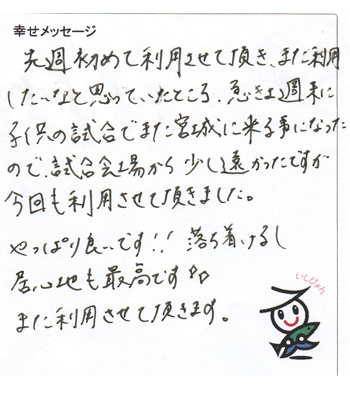 幸せメッセージ
先週初めて利用させて頂き、また利用
したいなと思っていたところ、急きょ週末に
子供の試合でまた宮城に来る事になった
ので、試合会場から少し遠かったですが
今回も利用させて頂きました。
やっぱり良いです!! 落ち着けるし
居心地も最高です♪♪
また利用させて頂きます。
いしぴょん